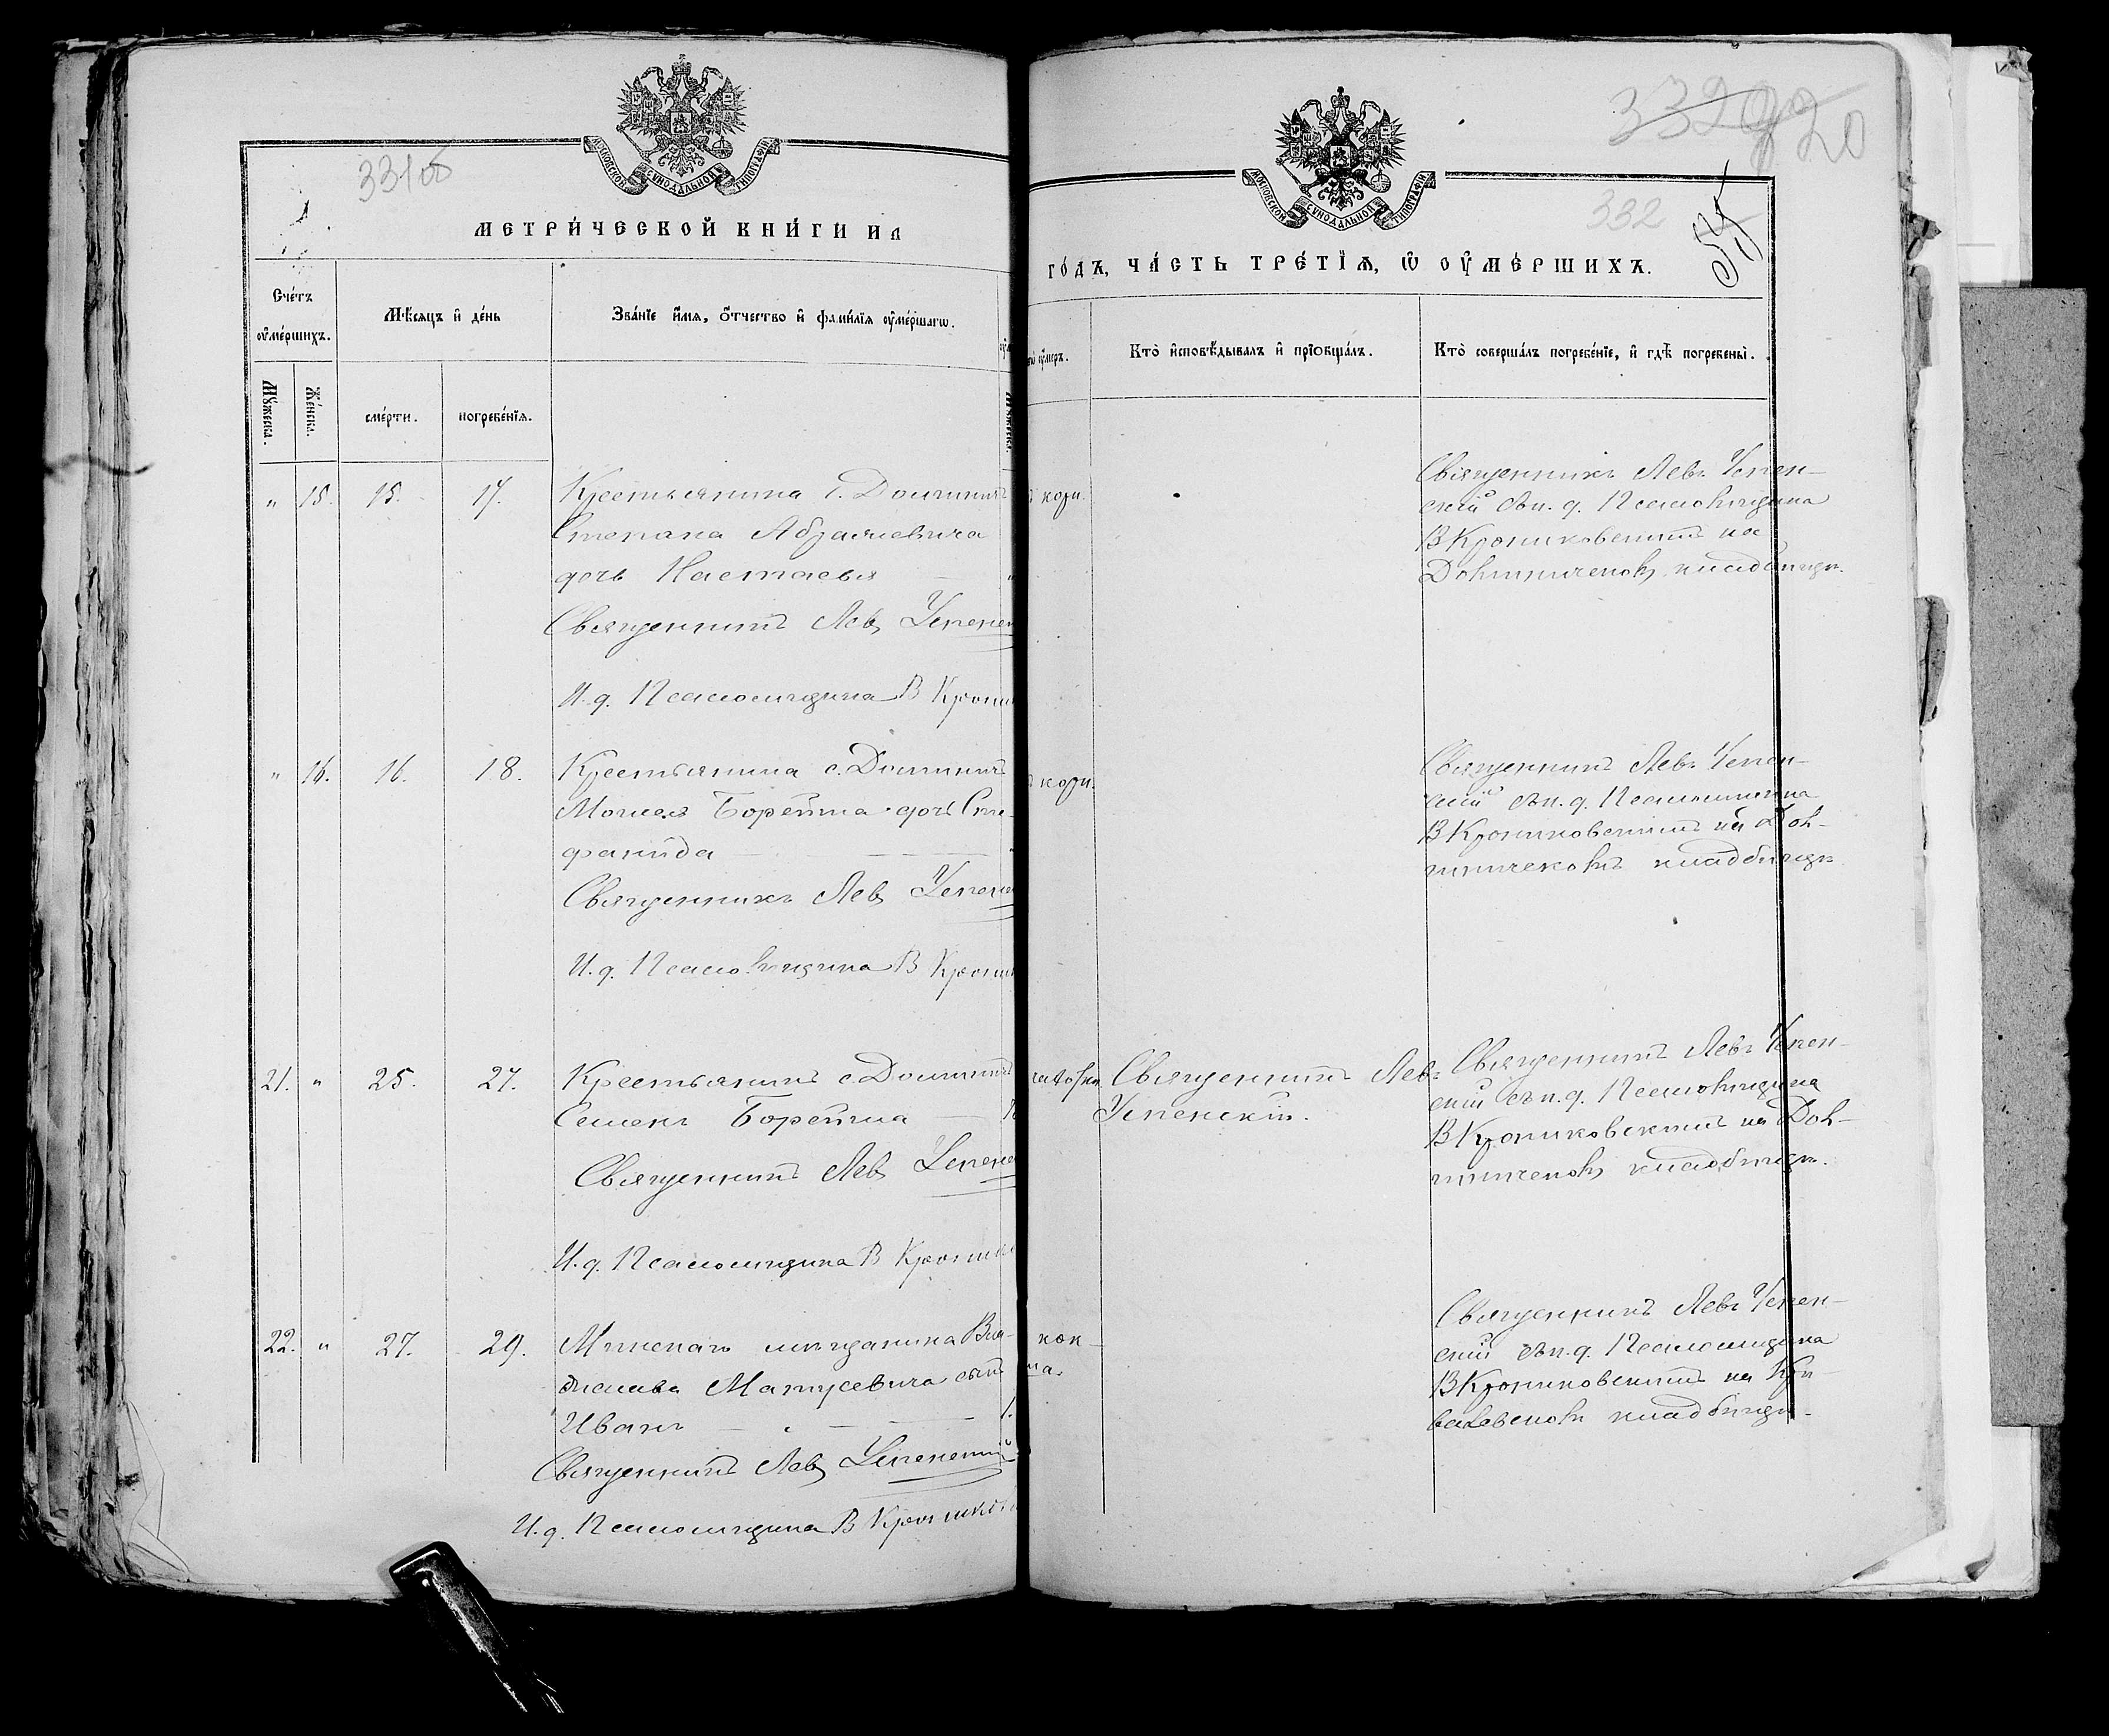 331об
МОСКОВСКОЙ СѴНОДАЛЬНОЙ ТИПОГРАФІИ
МЕТРИ́ЧЕСКОЙ КНИ́ГИ НА
Сче́тъ ᲂу҆ме́ршихъ.
Мѣ́сяцъ и҆ де́нь
Зва́нїе и҆́мѧ, ѻ҆́тчество и҆ фами́лїя ᲂу҆ме́ршагѡ.
Мꙋ́жеска.
Же́нска.
сме́рти.
погребе́нїѧ.
" 15. 15. 17. Крестьянина с.
Степана Абрамевича
дочь Настасья
Священникъ Левъ Успенск
И. д. Псаломщика В Крони
" 16. 16. 18. Крестьянина с.
Борейша дочь Сте-
фанида
Священникъ Левъ Успенс
И. д. Псаломщика В Крони
21. " 25. 27. Крестьянинъ с.
Семенъ Борейша
Священникъ Левъ Успенс
И. д. Псаломщика В Крони
22. " 27. 29. Минскаго мѣщанина Вла-
дислава Матусевича сынъ
Иванъ 1.
Священникъ Левъ Успенскій
И. д. Псаломщика В Крониковс
332
20
332
МОСКОВСКОЙ СѴНОДАЛЬНОЙ ТИПОГРАФІИ
ГО́ДЪ, ЧА́СТЬ ТРЕ́ТЇѦ, Ѡ҆ ᲂУ҆МЕ́РШИХЪ.
ᲂу҆́меръ.
Кто̀ и҆сповѣ́дывалъ и҆ прїѡбща́лъ.
Кто̀ соверша́лъ погребе́нїе, и҆ гдѣ̀ погребены̀.
кори.
Священникъ Левъ Успен-
скій съ и. д. Псаломщика
В Крониковскимъ на
кладбищѣ.
кори.
Священникъ Левъ Успен-
скій съ и. д. Псаломщика
В Крониковскимъ на
кладбищѣ
Священникъ Левъ
Успенскій.
Священникъ Левъ Успен-
скій съ и. д. Псаломщика
В Крониковскимъ на
кладбищѣ.
кок-
ша.
Священникъ Левъ Успен-
скій съ и. д. Псаломщика
В Крониковскимъ на
кладбищѣ.